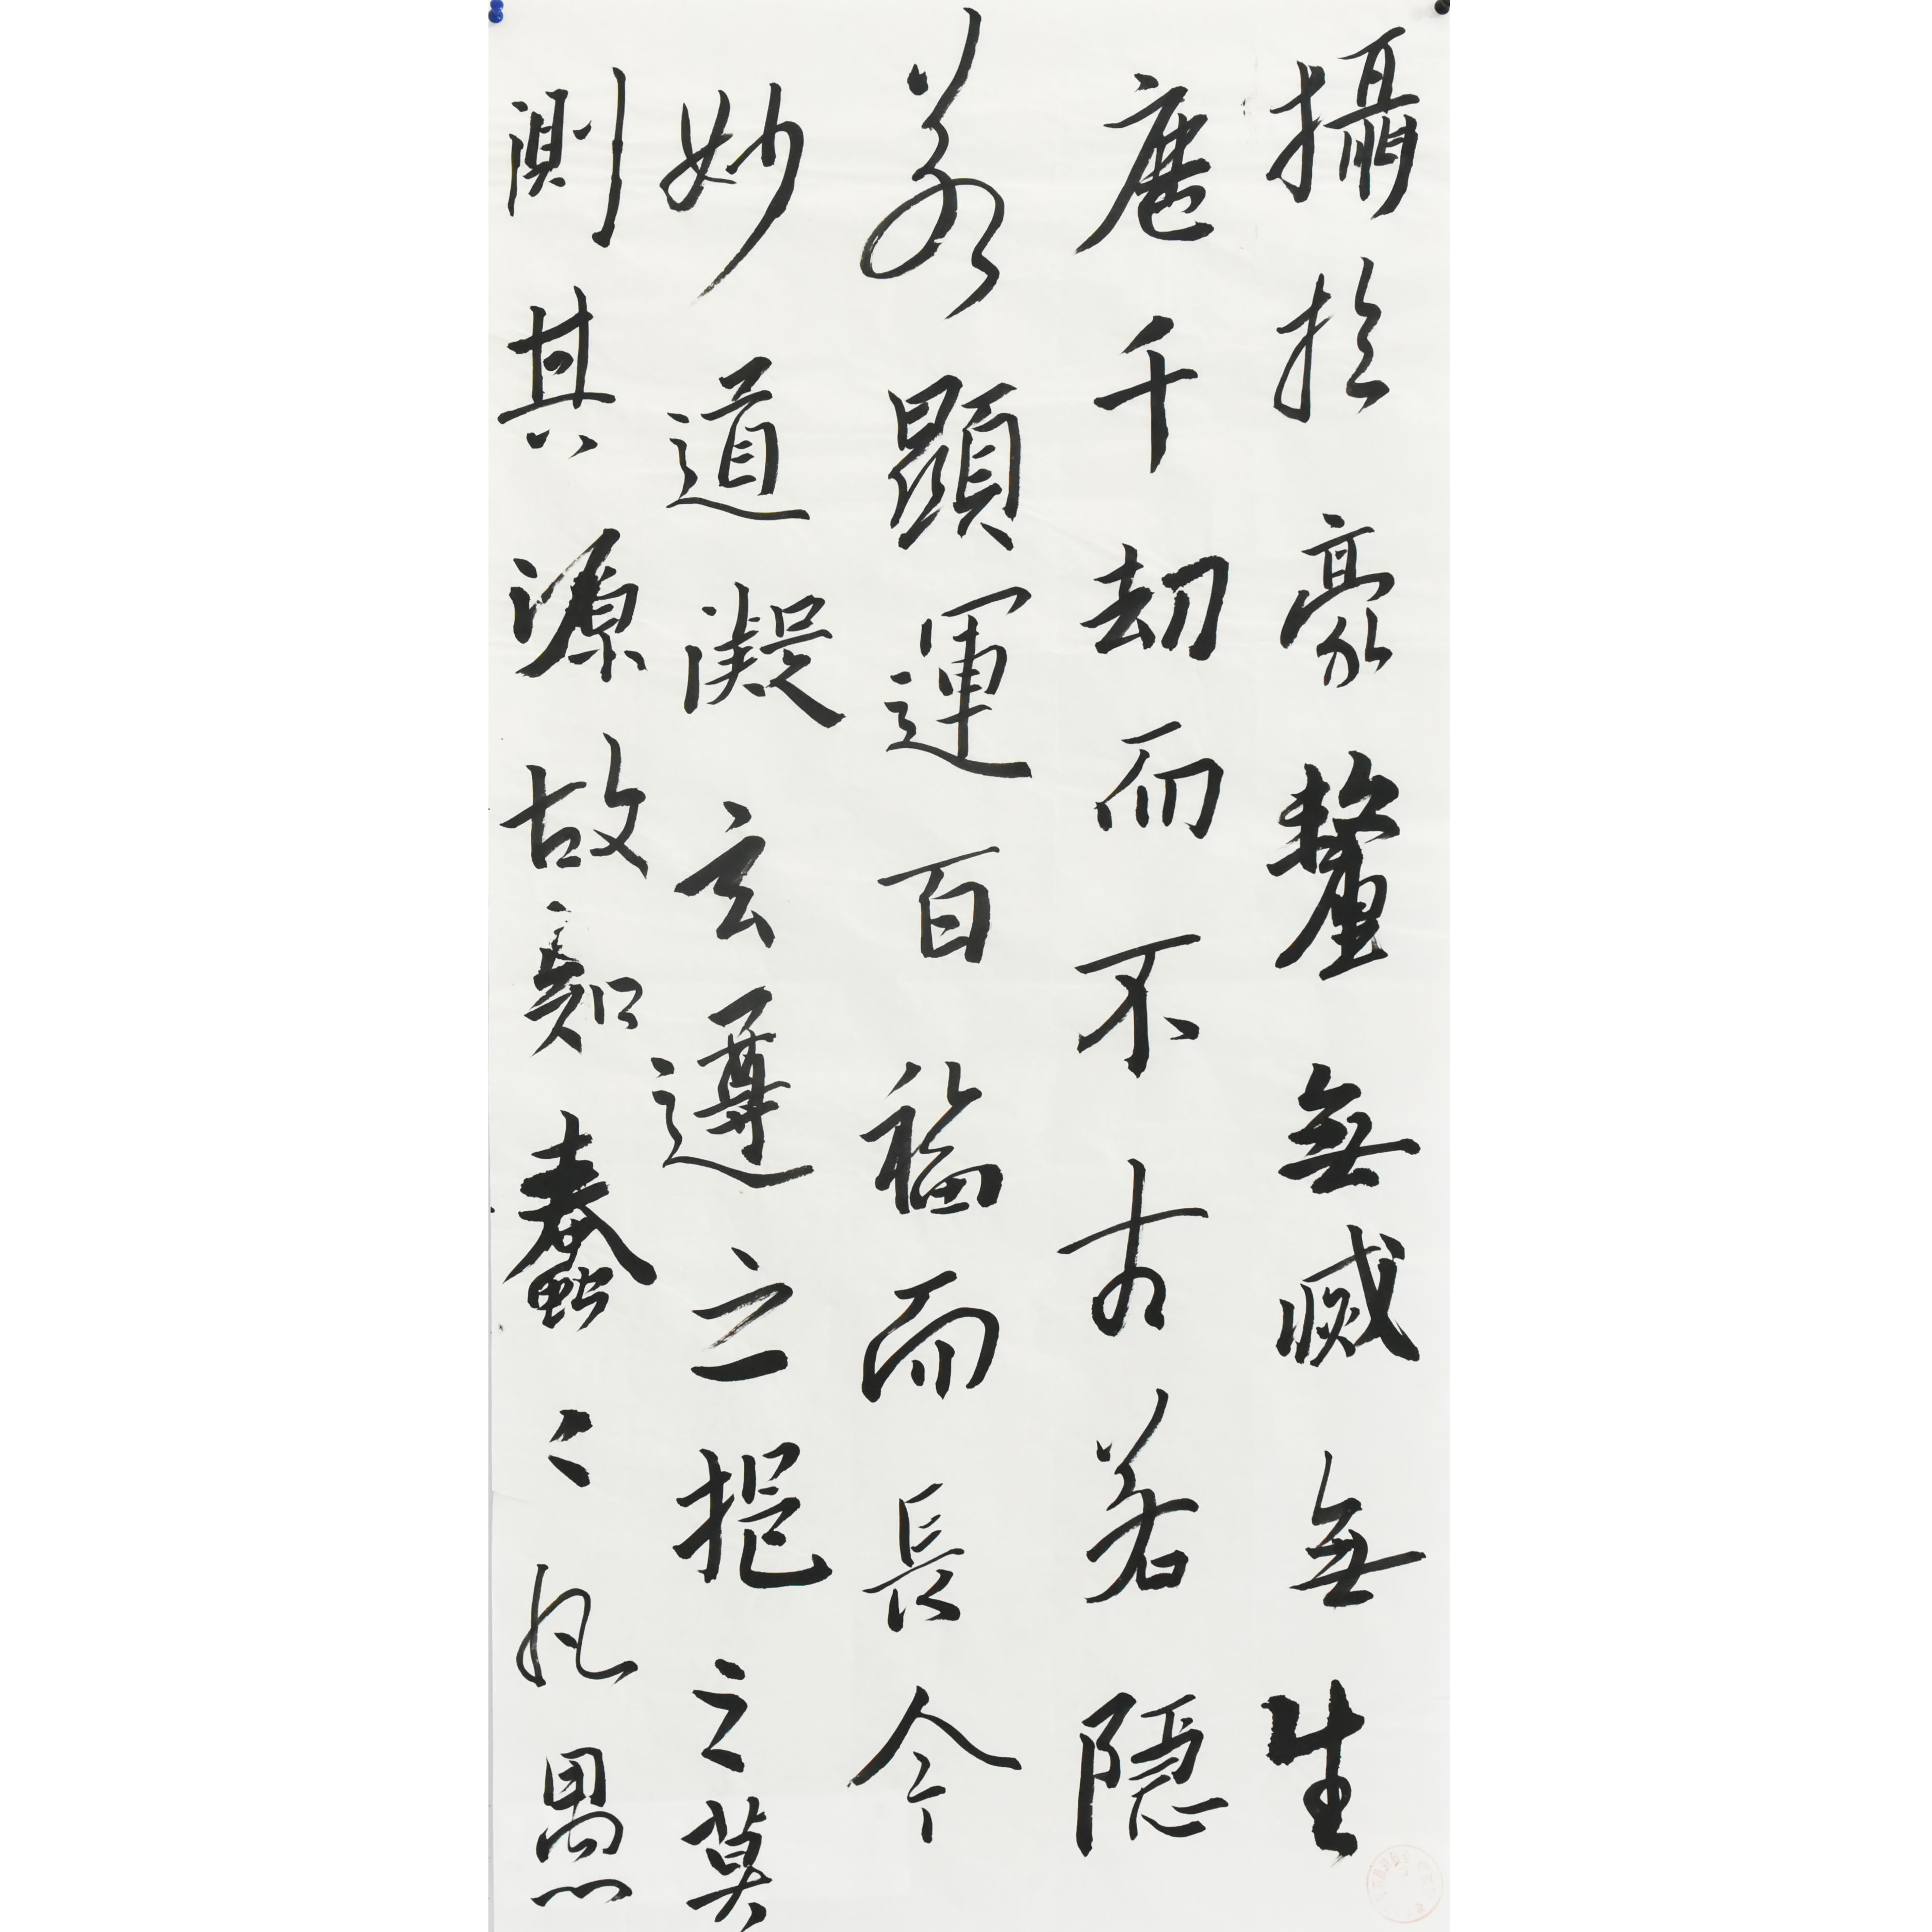 攝於豪釐無滅無生
歷千劫而不古若隱
若顯運百福而長今
妙道凝玄遵之挹之莫
測其源故知蠢々凡愚